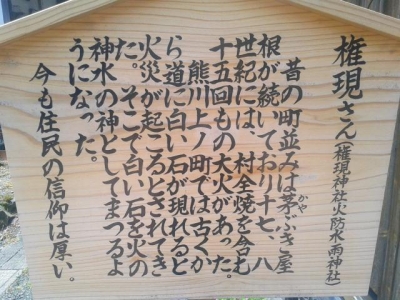 権現さん(権現神社火防水雨神社)
昔の町並みは茅ぶき屋
かや
根が続いており十七、八
世紀には、村全焼を含む
十五回もの大火があった。
熊川上ノ町では古くか
ら道に白い石が現れると
火災が起こるとされてき
た。そこで白い石を火の
神水の神としてまつるよ
うになった。
今も住民の信仰は厚い。